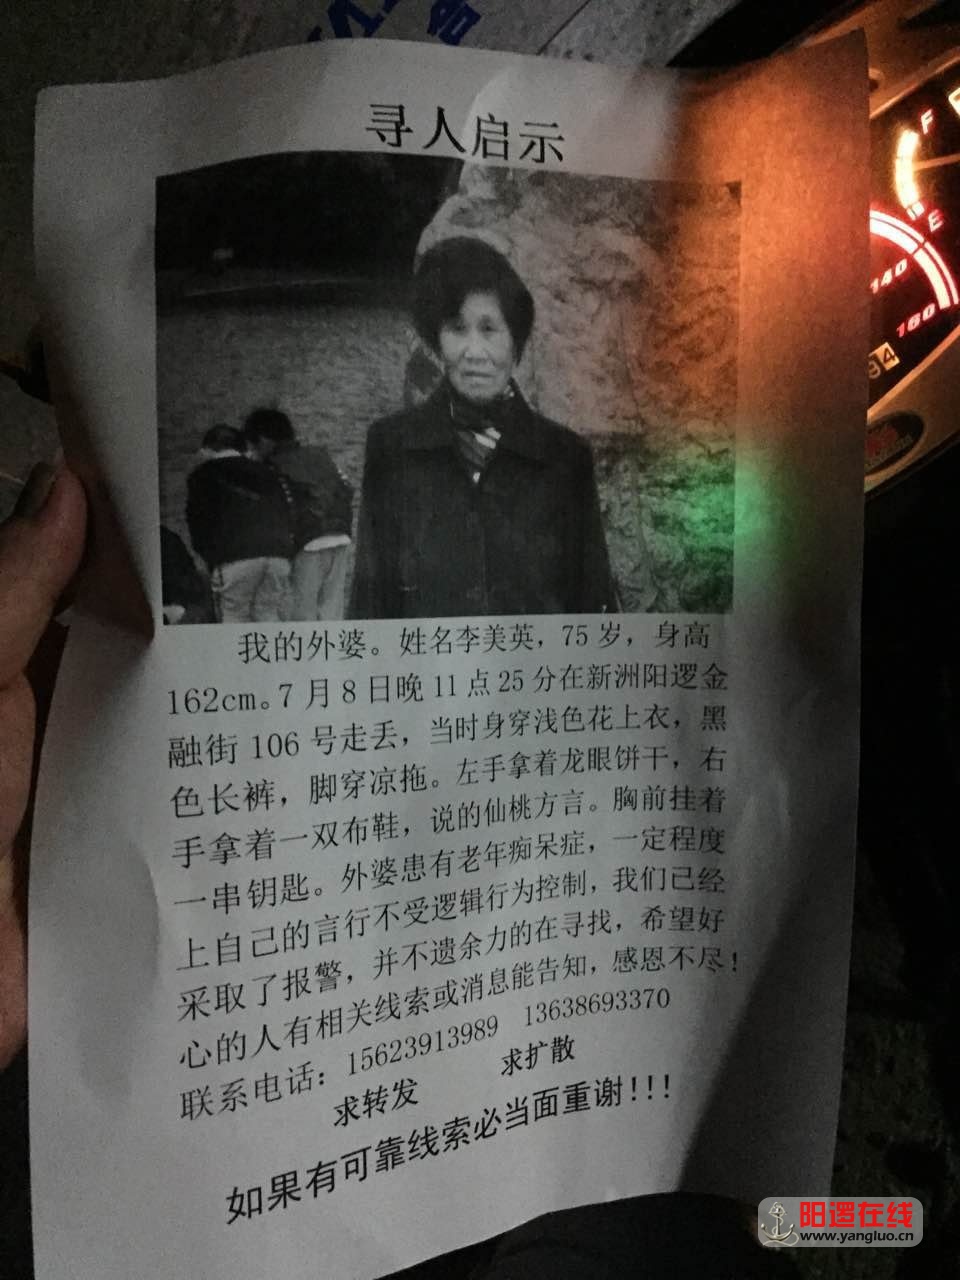 寻人启示
我的外婆。姓名李美英，75岁，身高
162cm。7月8日晚11点25分在新洲阳逻金
融街106号走丢，当时身穿浅色花上衣，黑
色长裤，脚穿凉拖。左手拿着龙眼饼干，右
手拿着一双布鞋，说的仙桃方言。胸前挂着
一串钥匙。外婆患有老年痴呆症，一定程度
上自己的言行不受逻辑行为控制，我们已经
采取了报警，并不遗余力的在寻找，希望好
心的人有相关线索或消息能告知，感恩不尽！
联系电话：15623913989 13638693370
求转发 求扩散
如果有可靠线索必当面重谢!!!
F
E
140
160
94
阳逻在线
www.yangluo.cn